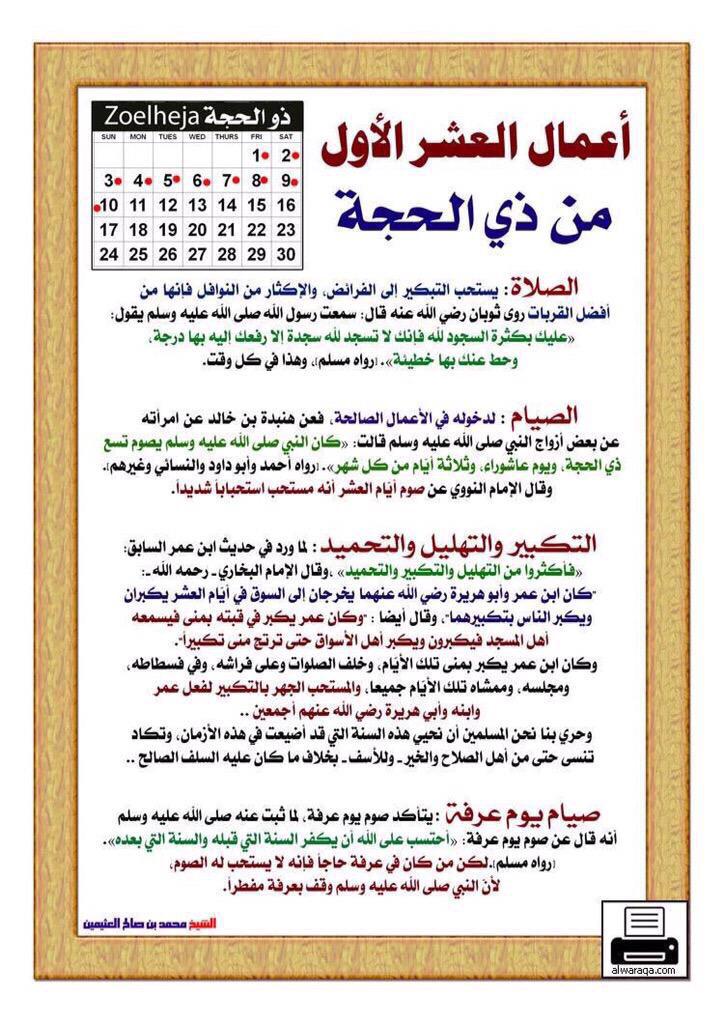 أعمال العشر الأول
من ذي الحجة
ذو الحجة Zoelheja
SUN MON TUES WED THURS FRI SAT
1 2
3 4 5 6 7 8 9
10 11 12 13 14 15 16
17 18 19 20 21 22 23
24 25 26 27 28 29 30
الصلاة : يستحب التبكير إلى الفرائض، والإكثار من النوافل فإنها من
أفضل القربات روى ثوبان رضي الله عنه قال: سمعت رسول الله صلى الله عليه وسلم يقول:
«عليك بكثرة السجود لله فإنك لا تسجد لله سجدة إلا رفعك إليه بها درجة،
وحط عنك بها خطيئة». [رواه مسلم]، وهذا في كل وقت.
الصيام : لدخوله في الأعمال الصالحة، فعن هنبدة بن خالد عن امرأته
عن بعض أزواج النبي صلى الله عليه وسلم قالت: «كان النبي صلى الله عليه وسلم يصوم تسع
ذي الحجة، ويوم عاشوراء، وثلاثة أيام من كل شهر». [رواه أحمد وأبو داود والنسائي وغيرهم].
وقال الإمام النووي عن صوم أيام العشر أنه مستحب استحباباً شديداً.
التكبير والتهليل والتحميد : لما ورد في حديث ابن عمر السابق:
«فأكثروا من التهليل والتكبير والتحميد» ،وقال الإمام البخاري ـ رحمه الله ـ:
"كان ابن عمر وأبو هريرة رضي الله عنهما يخرجان إلى السوق في أيام العشر يكبران
ويكبر الناس بتكبيرهما"، وقال أيضا : "وكان عمر يكبر في قبته بمنى فيسمعه
أهل المسجد فيكبرون ويكبر أهل الأسواق حتى ترتج منى تكبيراً".
وكان ابن عمر يكبر بمنى تلك الأيام، وخلف الصلوات وعلى فراشه، وفي فسطاطه،
ومجلسه، وممشاه تلك الأيام جميعا، والمستحب الجهر بالتكبير لفعل عمر
وابنه وأبي هريرة رضي الله عنهم أجمعين ..
وحري بنا نحن المسلمين أن نحيي هذه السنة التي قد أضيعت في هذه الأزمان، وتكاد
تنسى حتى من أهل الصلاح والخير ـ وللأسف ـ بخلاف ما كان عليه السلف الصالح ..
صيام يوم عرفة : يتأكد صوم يوم عرفة، لما ثبت عنه صلى الله عليه وسلم
أنه قال عن صوم يوم عرفة: «أحتسب على الله أن يكفر السنة التي قبله والسنة التي بعده».
[رواه مسلم].لكن من كان في عرفة حاجاً فإنه لا يستحب له الصوم،
لأن النبي صلى الله عليه وسلم وقف بعرفة مفطراً.
الشيخ محمد بن صالح العثيمين
alwaraqa.com